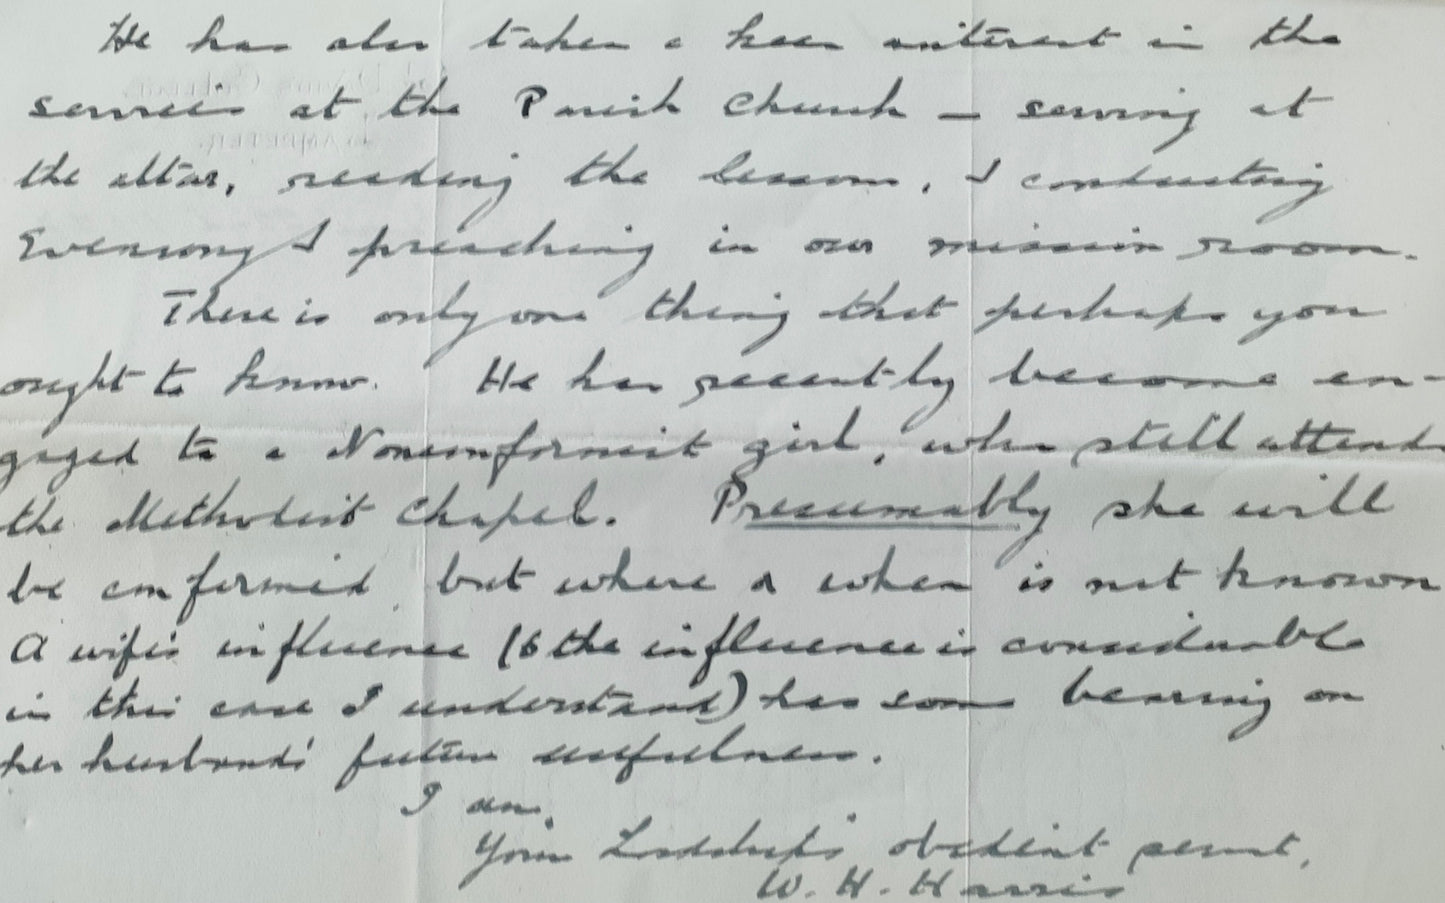 He has also taken a keen interest in the
services at the Parish Church – serving at
the altar, reading the lessons, & conducting
Evensong & preaching in our mission room.
There is only one thing that perhaps you
ought to know. He has recently become en-
gaged to a Nonconformist girl, who still attends
the Methodist Chapel. Presumably she will
be confirmed, but where & when is not known
A wife's influence (& the influence is considerable
in this case I understand) has some bearing on
her husband's future usefulness.
I am,
Your Lordship's obedient servant,
W. H. Harris